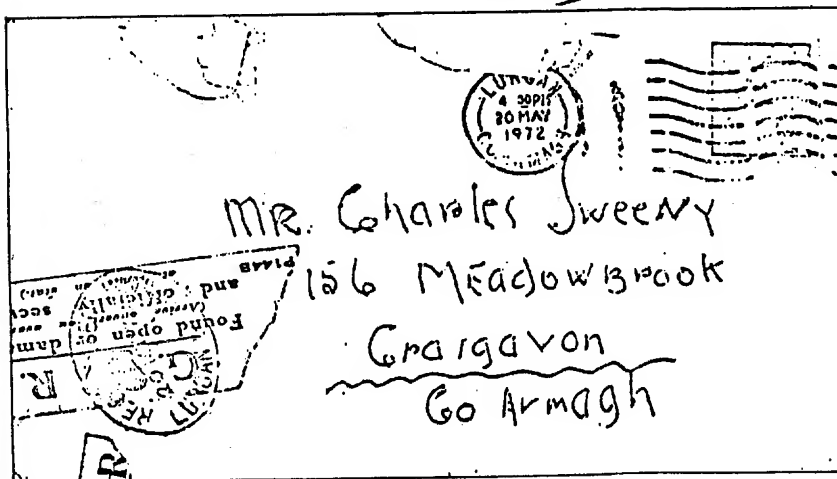 LURGAN
4 30PM
20 MAY
1972
MR. Charles Sweeny
156 MEadowBrook
Craigavon
Co Armagh
P144B
Found open or dam
and officially sec
G. R.
LURGAN
R